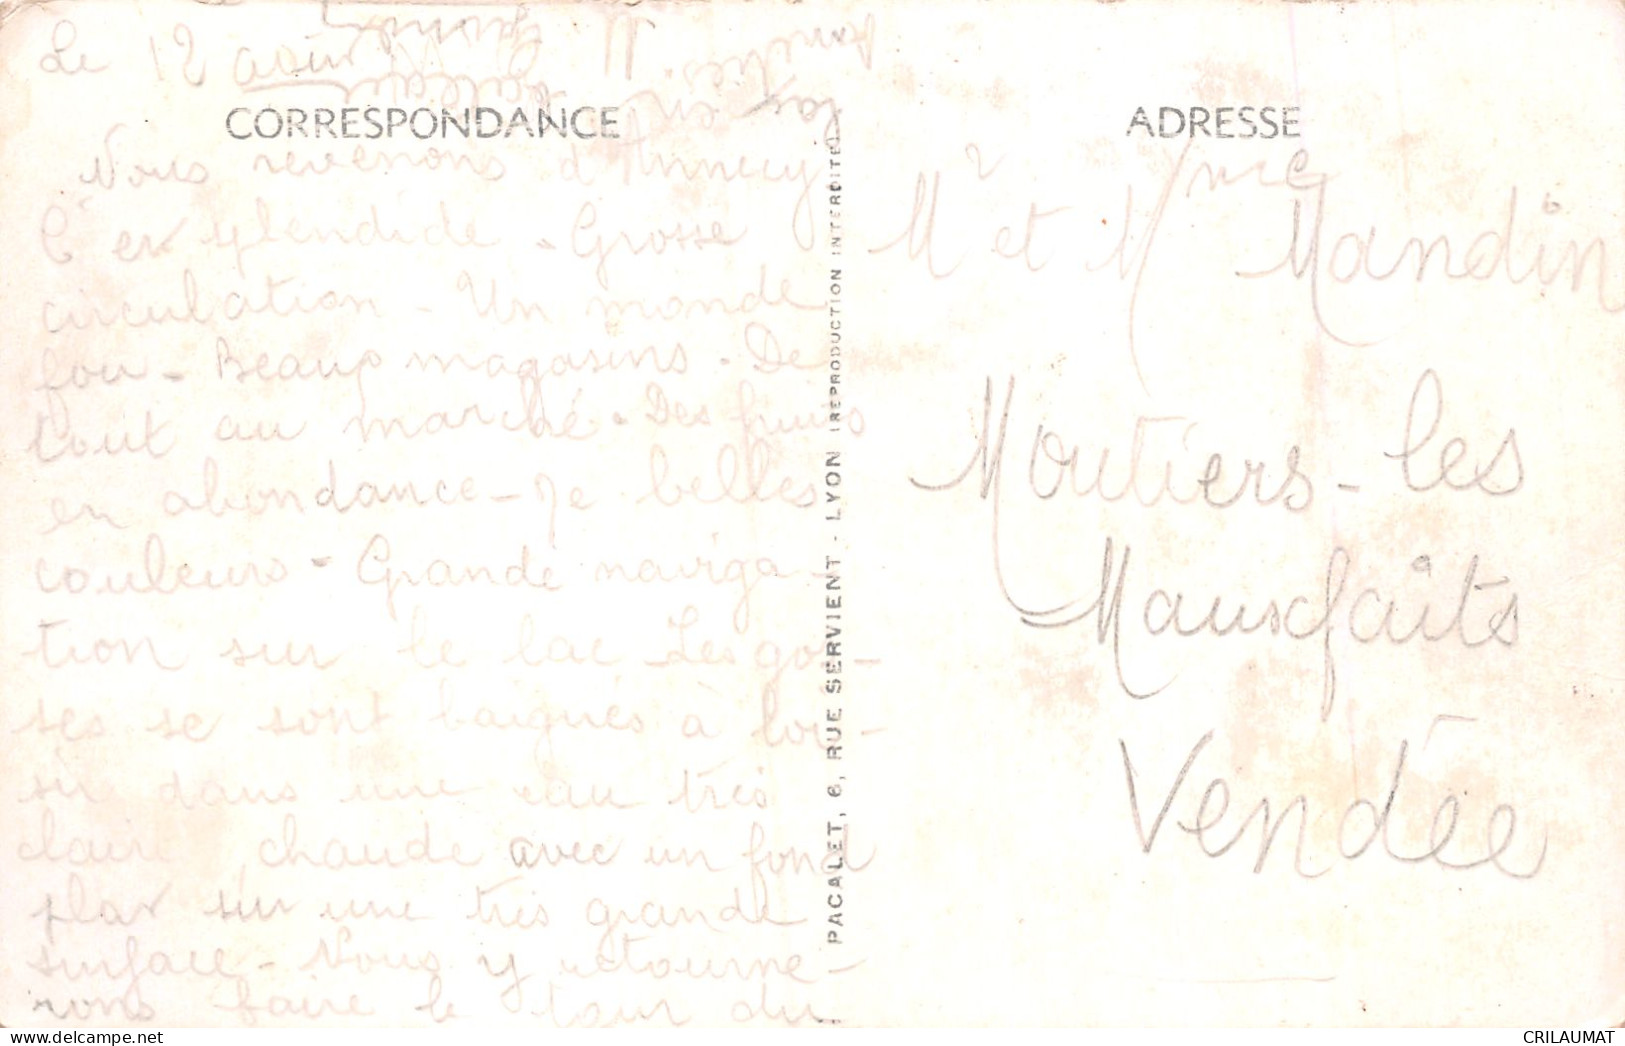 Le 12 août
CORRESPONDANCE
Nous revenons d'Annecy
C'est splendide - Grosse
circulation - Un monde
fou - Beaux magasins. De
tout au marché. Des fruits
en abondance - De belles
couleurs - Grande naviga
tion sur le lac - Les gos-
ses se sont baignés à loi-
sir dans une eau très
claire, chaude avec un fond
plat sur une très grande
surface - Nous y retourne-
rons faire le tour du
lac en bateau
Amitiés. M
PACALET, 6, RUE SERVIENT - LYON (REPRODUCTION INTERDITE)
ADRESSE
Mr et Mme Mandin
Moutiers-les
Mauxfaits
Vendée
CRILAUMAT